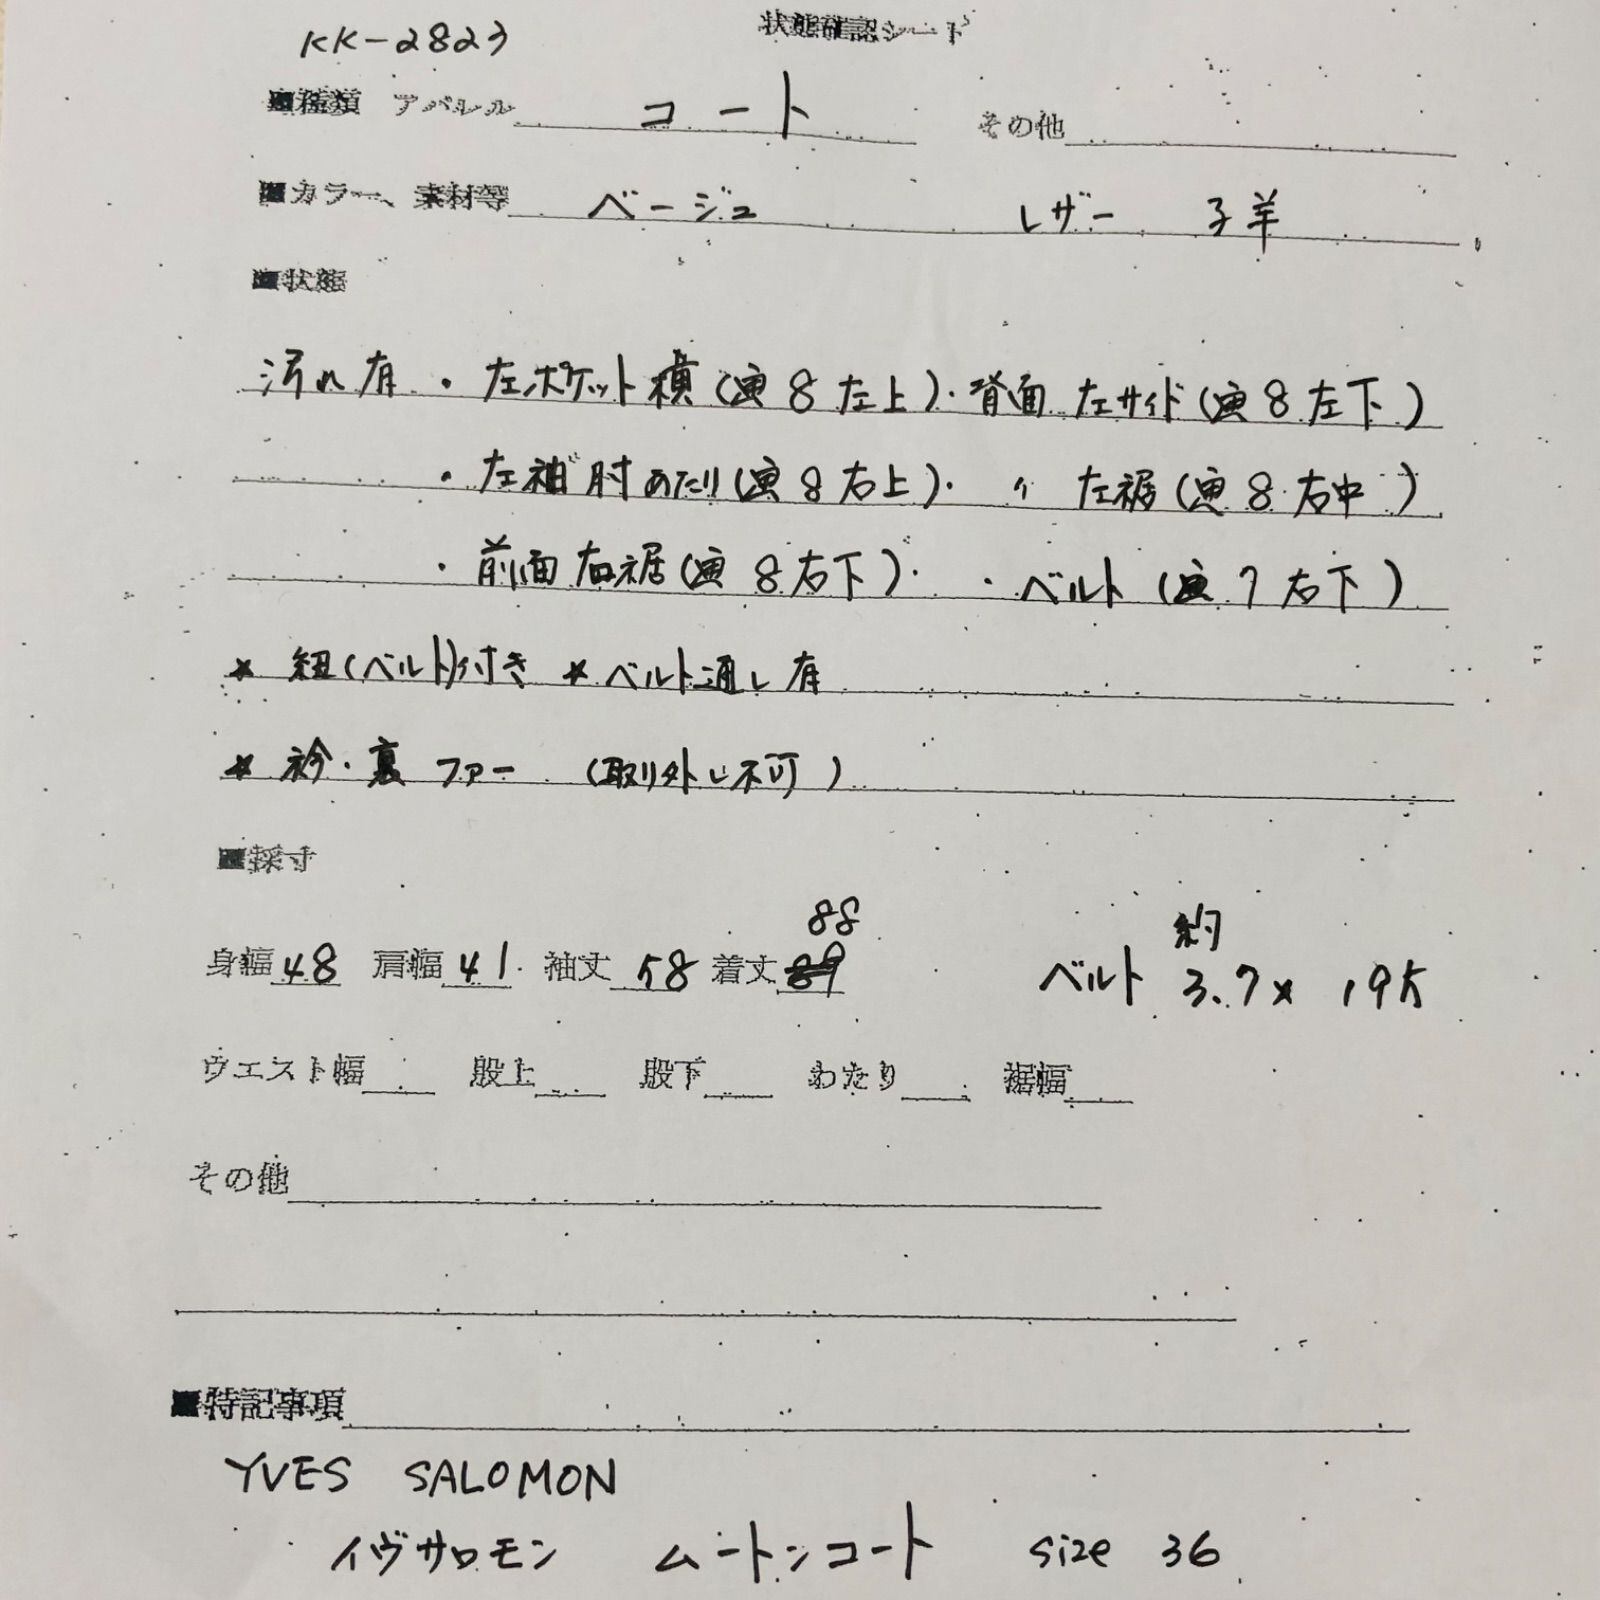 KK-2823
状態確認シート
■種類 アパレル コート その他
■カラー、素材等 ベージュ レザー 子羊
■状態
汚れ有 ・左ポケット横(画8左上)・背面左サイド(画8左下)
・左袖肘あたり(画8右上)・ 〃 左裾(画8右中)
・前面右裾(画8右下)・ ・ベルト(画7右下)
* 紐(ベルト)付き * ベルト通し有
* 衿・裏ファー (取り外し不可)
■採寸
88
身幅48 肩幅41 袖丈58 着丈89 ベルト 約3.7× 195
ウエスト幅 股上 股下 わたり 裾幅
その他
■特記事項
YVES SALOMON
イヴサロモン ムートンコート size 36